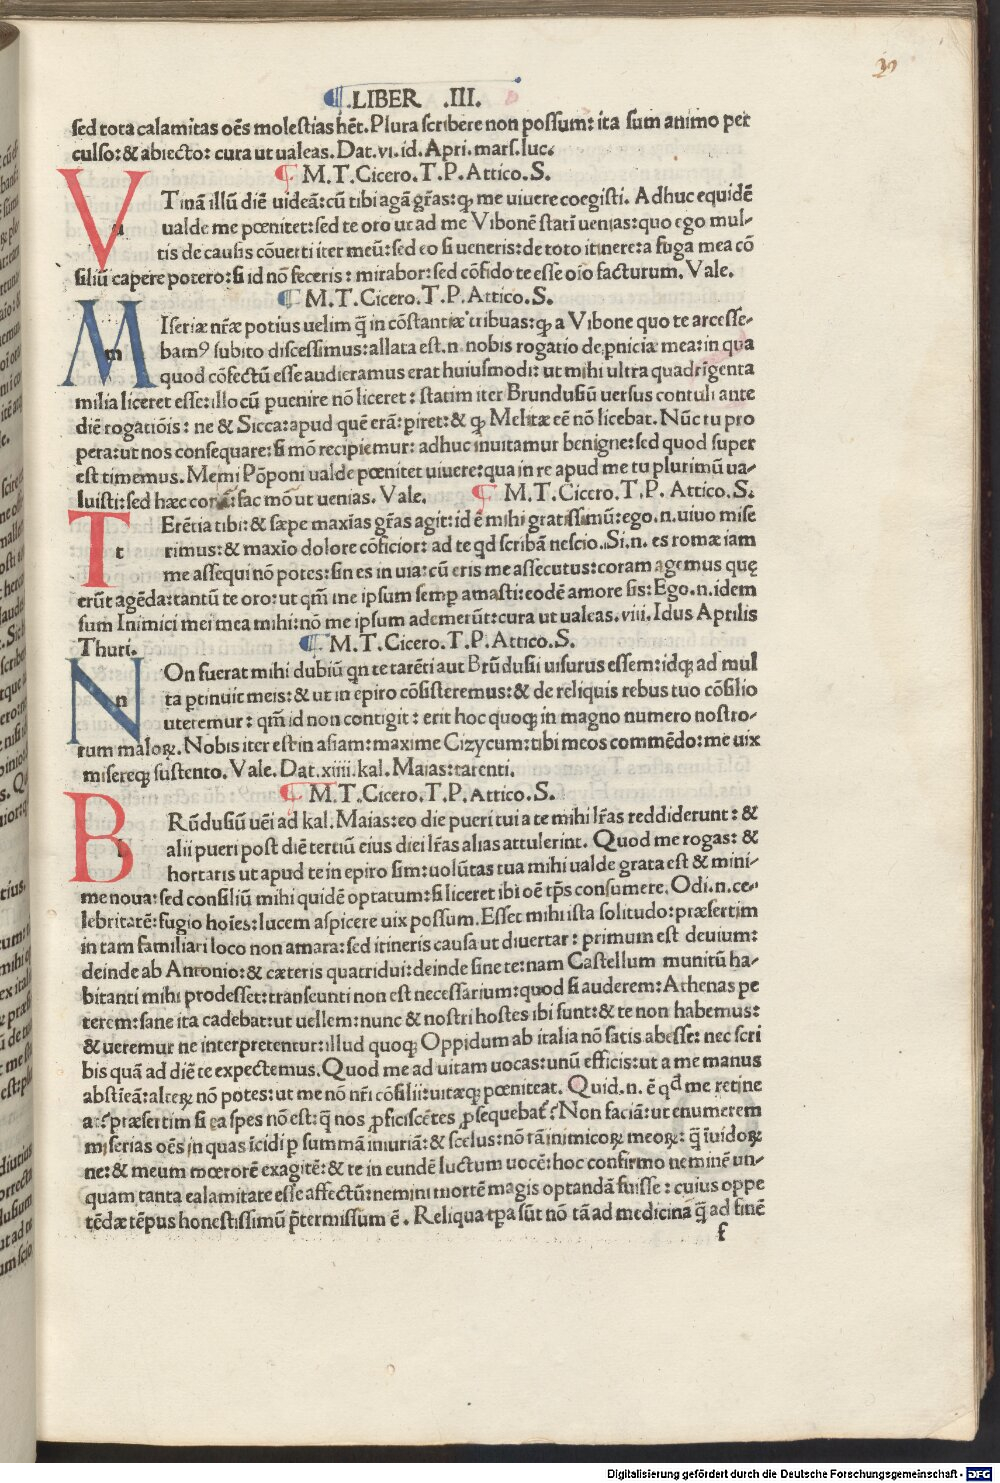 .LIBER .III.
sed tota calamitas oẽs molestias hẽt. Plura scribere non possum: ita sum animo per
culso: & abiecto: cura ut ualeas. Dat. vi. id. Apri. mars. luc.
M. T. Cicero. T. P. Attico. S.
VTinã illũ diẽ uideã: cũ tibi agã gr̃as: ꝙ me uiuere coegisti. Adhuc equidẽ
ualde me pœnitet: sed te oro ut ad me Vibonẽ statĩ uenias: quo ego mul-
tis de causis cõuerti iter meũ: sed eo si ueneris: de toto itinere: a fuga mea cõ
siliũ capere potero: si id nõ feceris: mirabor: sed cõfido te esse oĩo facturum. Vale.
M. T. Cicero. T. P. Attico. S.
MIseriæ nr̃æ potius uelim q̃ in cõstantiæ tribuas: ꝙ a Vibone quo te arcesse-
bamꝰ subito discessimus: allata est .n. nobis rogatio de ꝑniciæ mea: in qua
quod cõfectũ esse audieramus erat huiusmodi: ut mihi ultra quadrĩgenta
milia liceret esse: illo cũ puenire nõ liceret: statim iter Brundusiũ uersus contuli ante
diẽ rogatiõis: ne & Sicca: apud quẽ erã: piret: & ꝙ Melitæ eẽ nõ licebat. Nũc tu pro
pera: ut nos consequare: si mõ recipiemur: adhuc inuitamur benigne: sed quod super
est timemus. Memi Põponi ualde pœnitet uiuere: qua in re apud me tu plurimũ ua-
luisti: sed hæc corã: fac mõ ut uenias. Vale. M. T. Cicero. T. P. Attico. S.
TErẽtia tibi: & sæpe maxĩas gr̃as agit: id ẽ mihi gratissimũ: ego .n. uiuo mise
rimus: & maxĩo dolore cõficior: ad te qd scribã nescio. Si .n. es romæ iam
me assequi nõ potes: sin es in uia: cũ eris me assecutus: coram agemus quę
erũt agẽda: tantũ te oro: ut qm̃ me ipsum semꝑ amasti: eodẽ amore sis: Ego .n. idem
sum Inimici mei mea mihi: nõ me ipsum ademerũt: cura ut ualeas. viii. Idus Aprilis
Thuri. M. T. Cicero. T. P. Attico. S.
NOn fuerat mihi dubiũ qn te tarẽti aut Brũdusii uisurus essem: idqꝫ ad mul
ta ꝑtinuit meis: & ut in epiro cõsisteremus: & de reliquis rebus tuo cõsilio
uteremur: qm̃ id non contigit: erit hoc quoqꝫ in magno numero nostro-
rum maloꝝ. Nobis iter est in asiam: maxime Cizycum: tibi meos commẽdo: me uix
misereqꝫ sustento. Vale. Dat. xiiii. kal. Maias: tarenti.
M. T. Cicero. T. P. Attico. S.
BRũdusiũ uẽi ad kal. Maias: eo die pueri tui a te mihi lr̃as reddiderunt: &
alii pueri post diẽ tertiũ eius diei lr̃as alias attulerint. Quod me rogas: &
hortaris ut apud te in epiro sim: uolũtas tua mihi ualde grata est & mini-
me noua: sed consiliũ mihi quidẽ optatum: si liceret ibi oẽ tp̃s consumere. Odi .n. ce-
lebritatẽ: fugio hoĩes: lucem aspicere uix possum. Esset mihi ista solitudo: præsertim
in tam familiari loco non amara: sed itineris causa ut diuertar: primum est deuium:
deinde ab Antonio: & cæteris quatridui: deinde sine te: nam Castellum munitũ ha-
bitanti mihi prodesset: transeunti non est necessarium: quod si auderem: Athenas pe
terem: sane ita cadebat: ut uellem: nunc & nostri hostes ibi sunt: & te non habemus:
& ueremur ne interpretentur: illud quoqꝫ Oppidum ab italia nõ satis abesse: nec scri
bis quã ad diẽ te expectemus. Quod me ad uitam uocas: unũ efficis: ut a me manus
abstĩeã: alteꝝ nõ potes: ut me nõ nr̃i cõsilii: uitæqꝫ pœniteat. Quid .n. ẽ qd me retine
at? præsertim si ea spes nõ est: q̃ nos ꝓficiscẽtes ꝓsequebat̃? Non faciã: ut enumerem
miserias oẽs in quas ĩcidi ꝑ summã iniuriã: & scelus: nõ tã inimicoꝝ meoꝝ: q̃ ĩuidoꝝ
ne: & meum mœrorẽ exagitẽ: & te in eundẽ luctum uocẽ: hoc confirmo neminẽ un-
quam tanta calamitate esse affectũ: nemini mortẽ magis optandã fuisse: cuius oppe
tẽdæ tẽpus honestissimũ p̃termissum ẽ. Reliqua tp̃a sũt nõ tã ad medicinã q̃ ad finẽ
f
Digitalisierung gefördert durch die Deutsche Forschungsgemeinschaft - DFG